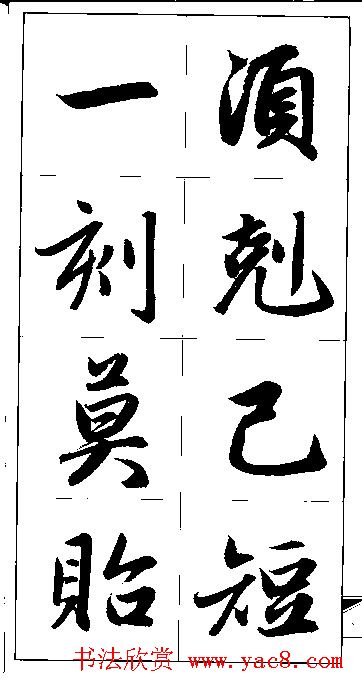 須剋己短
一刻莫貽
书法欣赏 www.yac8.com